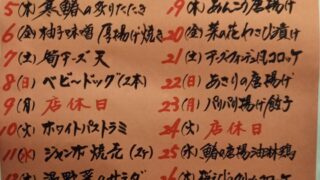 5(木)寒鰆の炙りたたき
6(金)柚子味噌厚揚げ焼き
7(土)筍チーズ天
8(日)ベビードッグ(2本)
9(月)店休日
10(火)ホワイトパストラミ
11(水)ジャンボ焼売(2ヶ)
19(木)あんこう唐揚げ
20(金)菜の花わさび漬け
21(土)チーズフォンデュ風コロッケ
22(日)あさりの唐揚げ
23(月)パリパリ揚げ餃子
24(火)店休日
25(水)鰆の唐揚油淋鶏